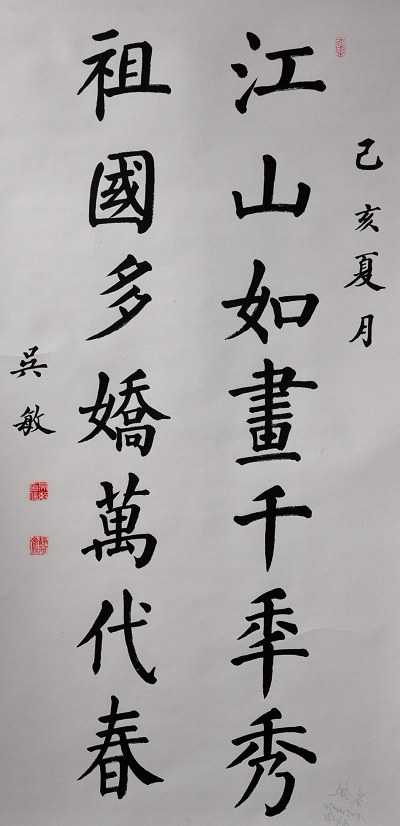 己亥夏月
江山如畫千年秀
祖國多嬌萬代春
吳敏